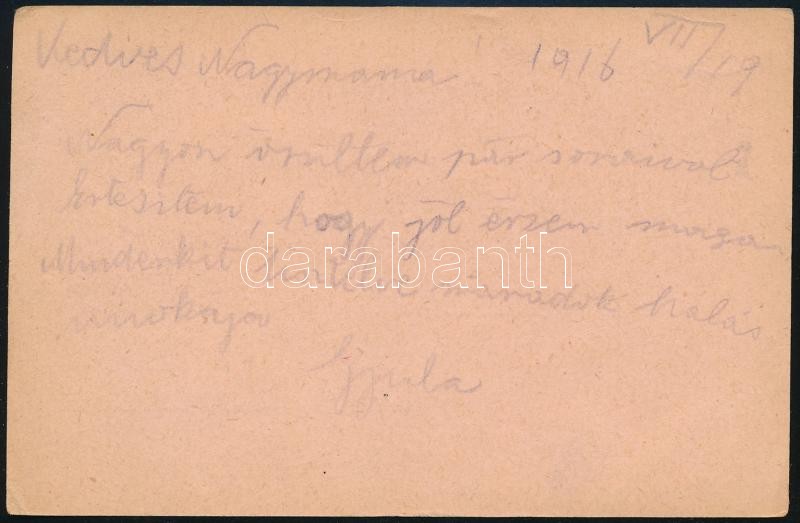 Kedves Nagymama! 1916 VII/19
Nagyon örültem pár soraival
Értesitem, hogy jól érzem magam
Mindenkit maradok hálás
unokája
Gyula
darabanth